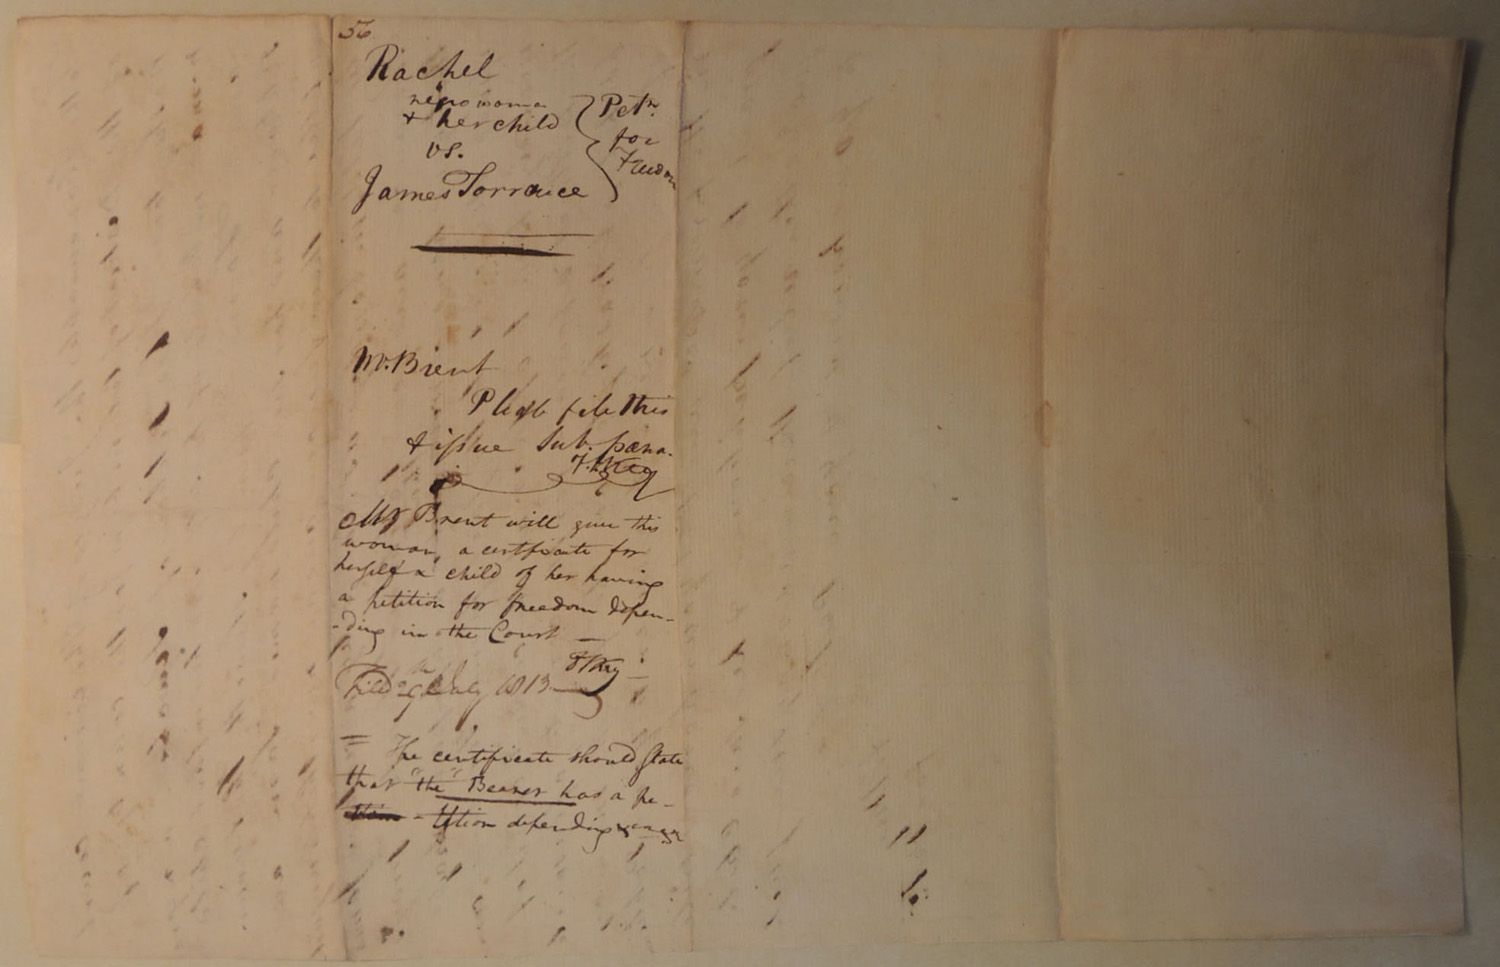 56
Rachel
negro woman
& her child
vs.
James Torrance
Petn.
for
Freedom
Mr. Brent
Please file this
& issue Subpœna.
F. S. Key
Mr Brent will give this
woman, a certificate for
herself & child of her having
a petition for freedom depen-
-ding in the Court —
F S Key
Filed 9th July 1813
= The certificate should state
that "the" Bearer has a pe-
-tition depending